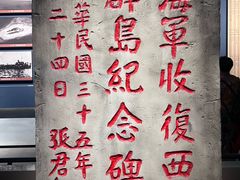 海軍收復西
群島紀念碑
華民國三十五年
二十四日 張君